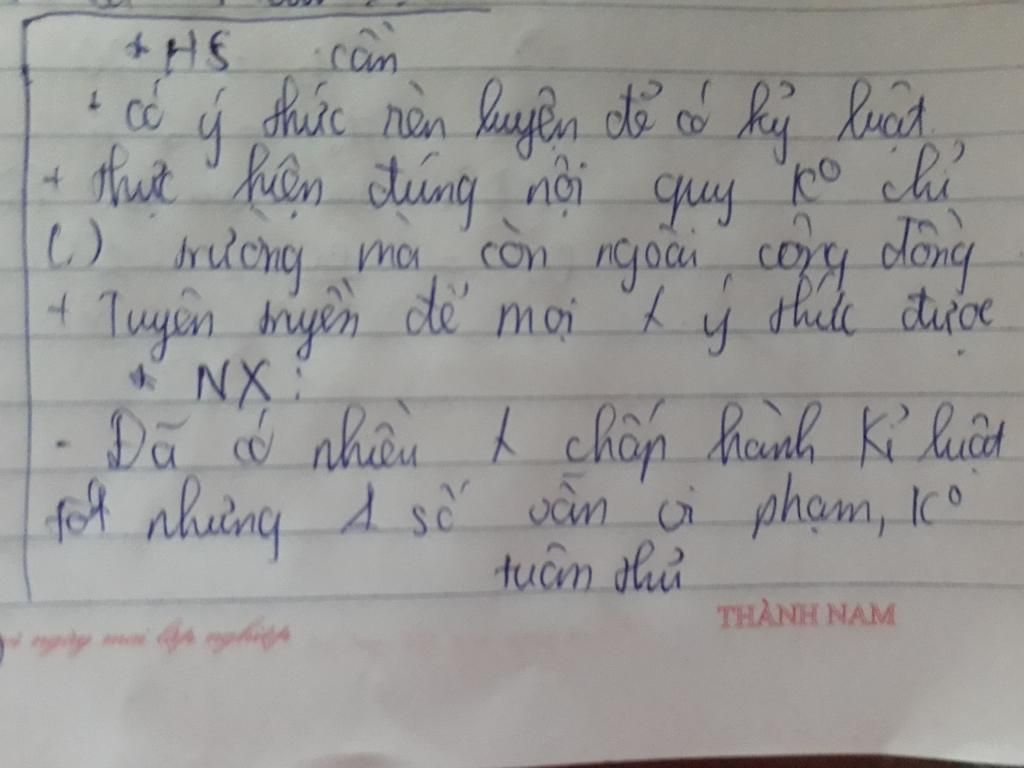 + HS cần
+ có ý thức rèn luyện để có kỷ luật
+ thực hiện đúng nội quy K⁰ chỉ
(.) trường mà còn ngoài cộng đồng
+ Tuyên truyền để mọi ý thức được
* NX:
- Đã có nhiều chấp hành Kỉ luật
tốt nhưng 1 số vẫn vi phạm, K⁰
tuân thủ
ngày mai lập nghiệp
THÀNH NAM